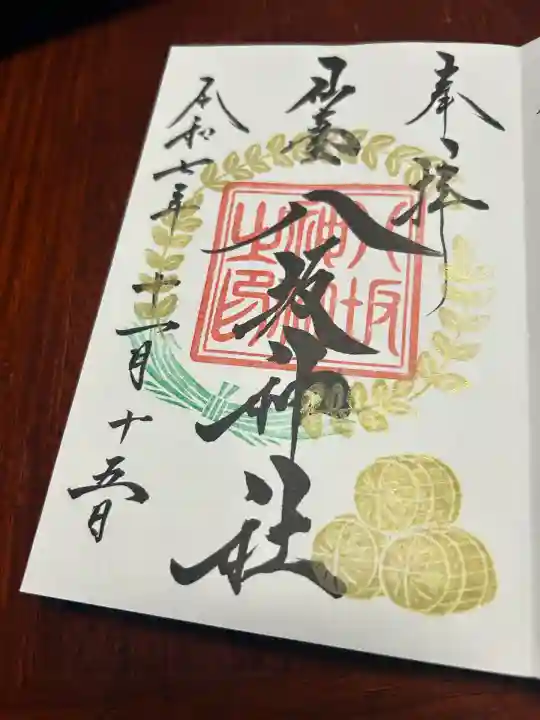 奉拝
仙台
八坂神社
八坂
神社
之印
令和七年
十一月
十五日